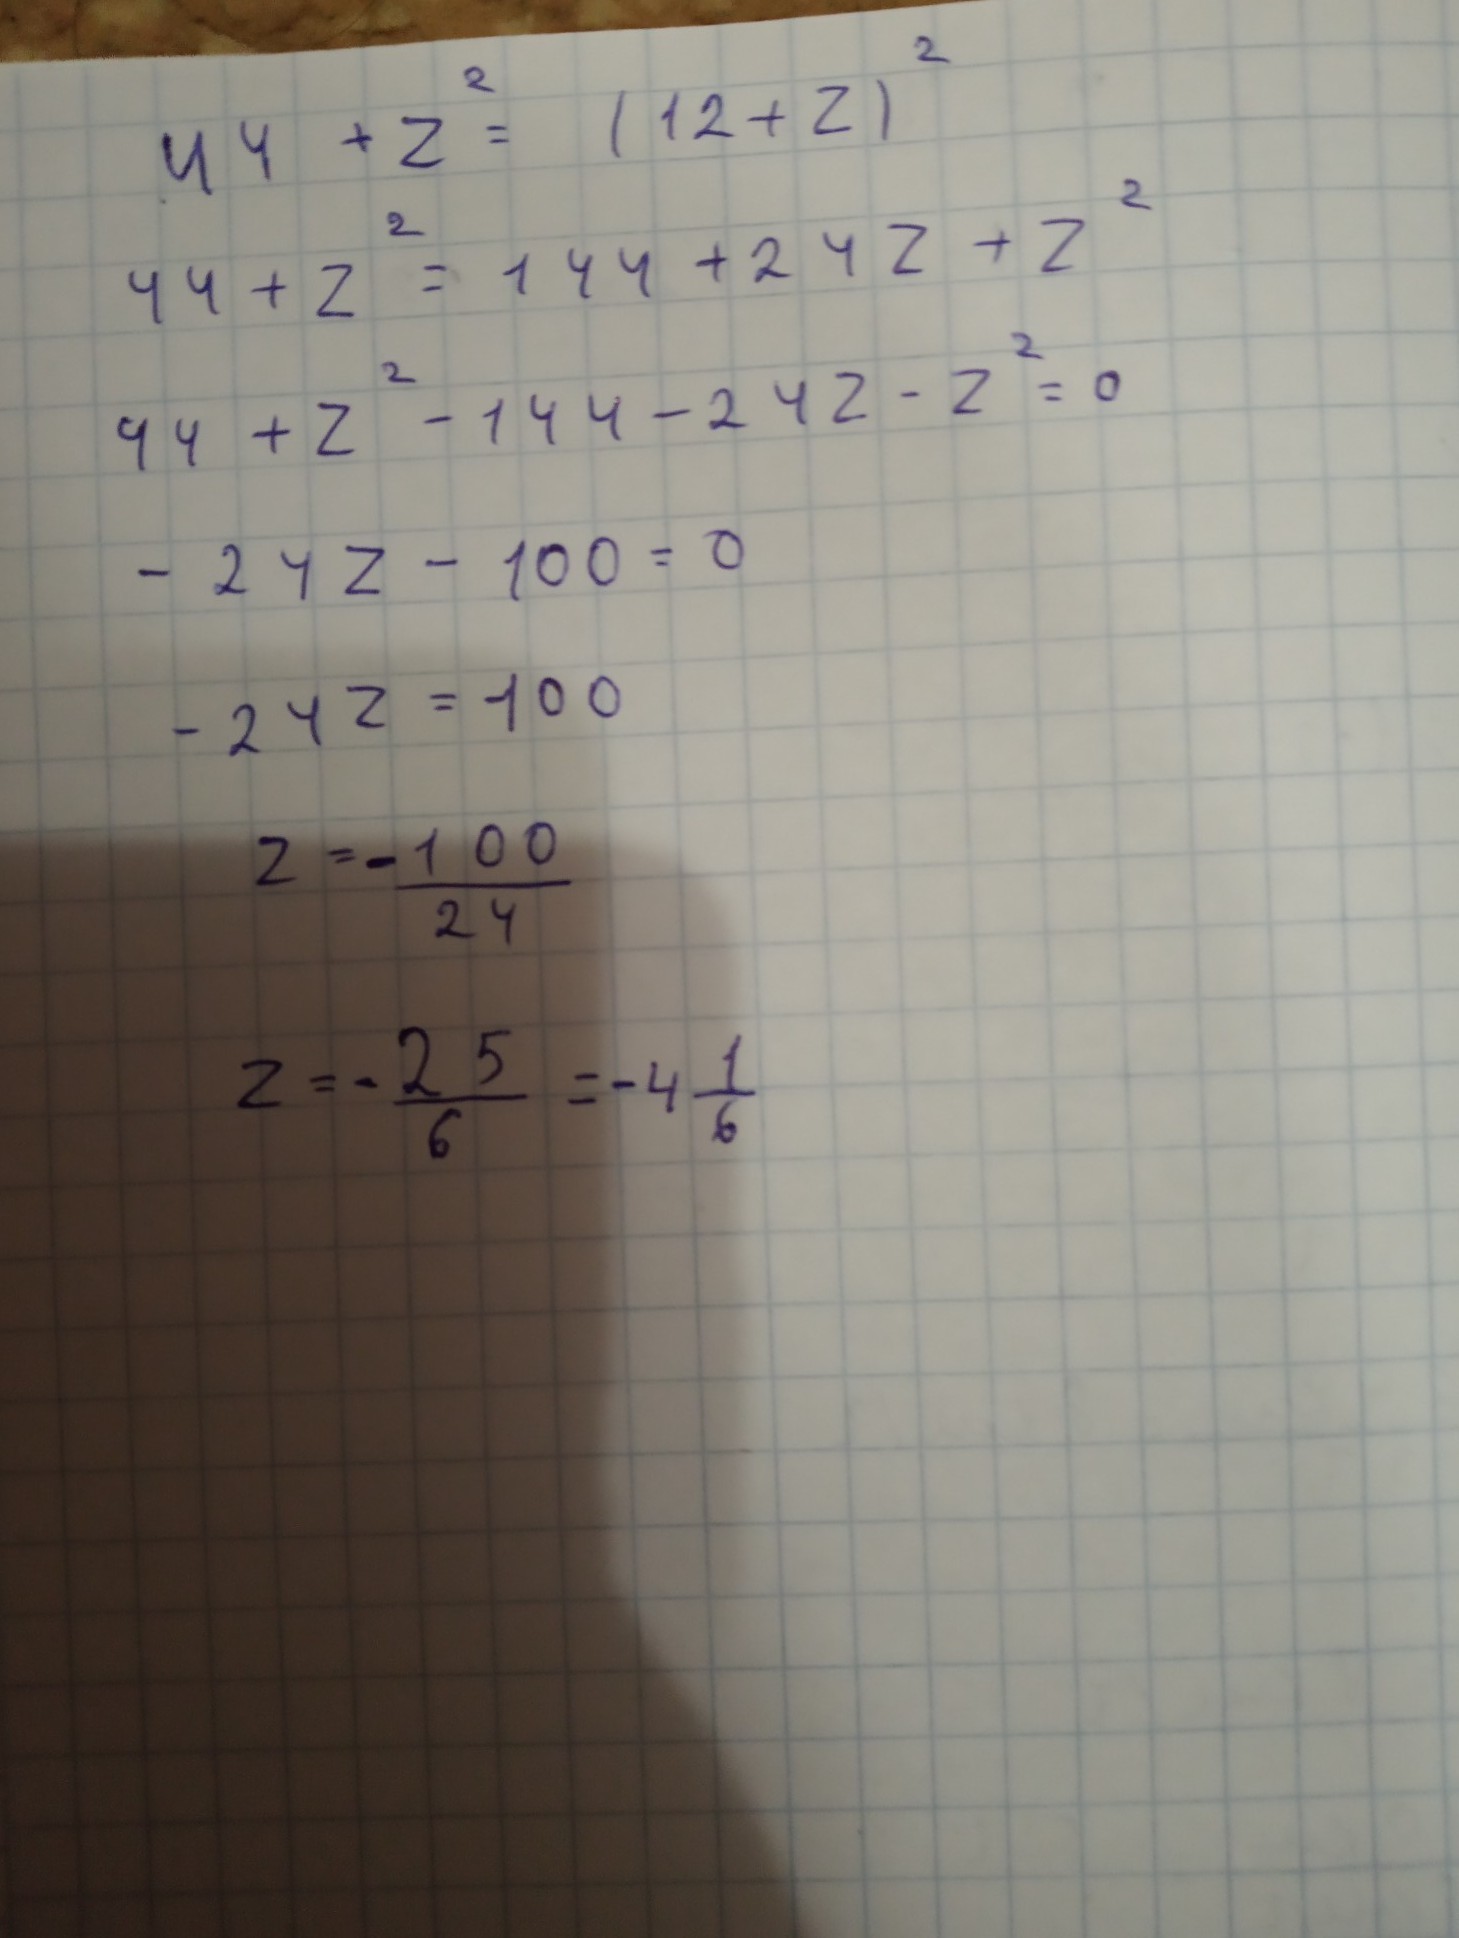 44 + z² = (12 + z)²
44 + z² = 144 + 24z + z²
44 + z² - 144 - 24z - z² = 0
- 24z - 100 = 0
- 24z = 100
z = -100/24
z = - 25/6 = -4 1/6